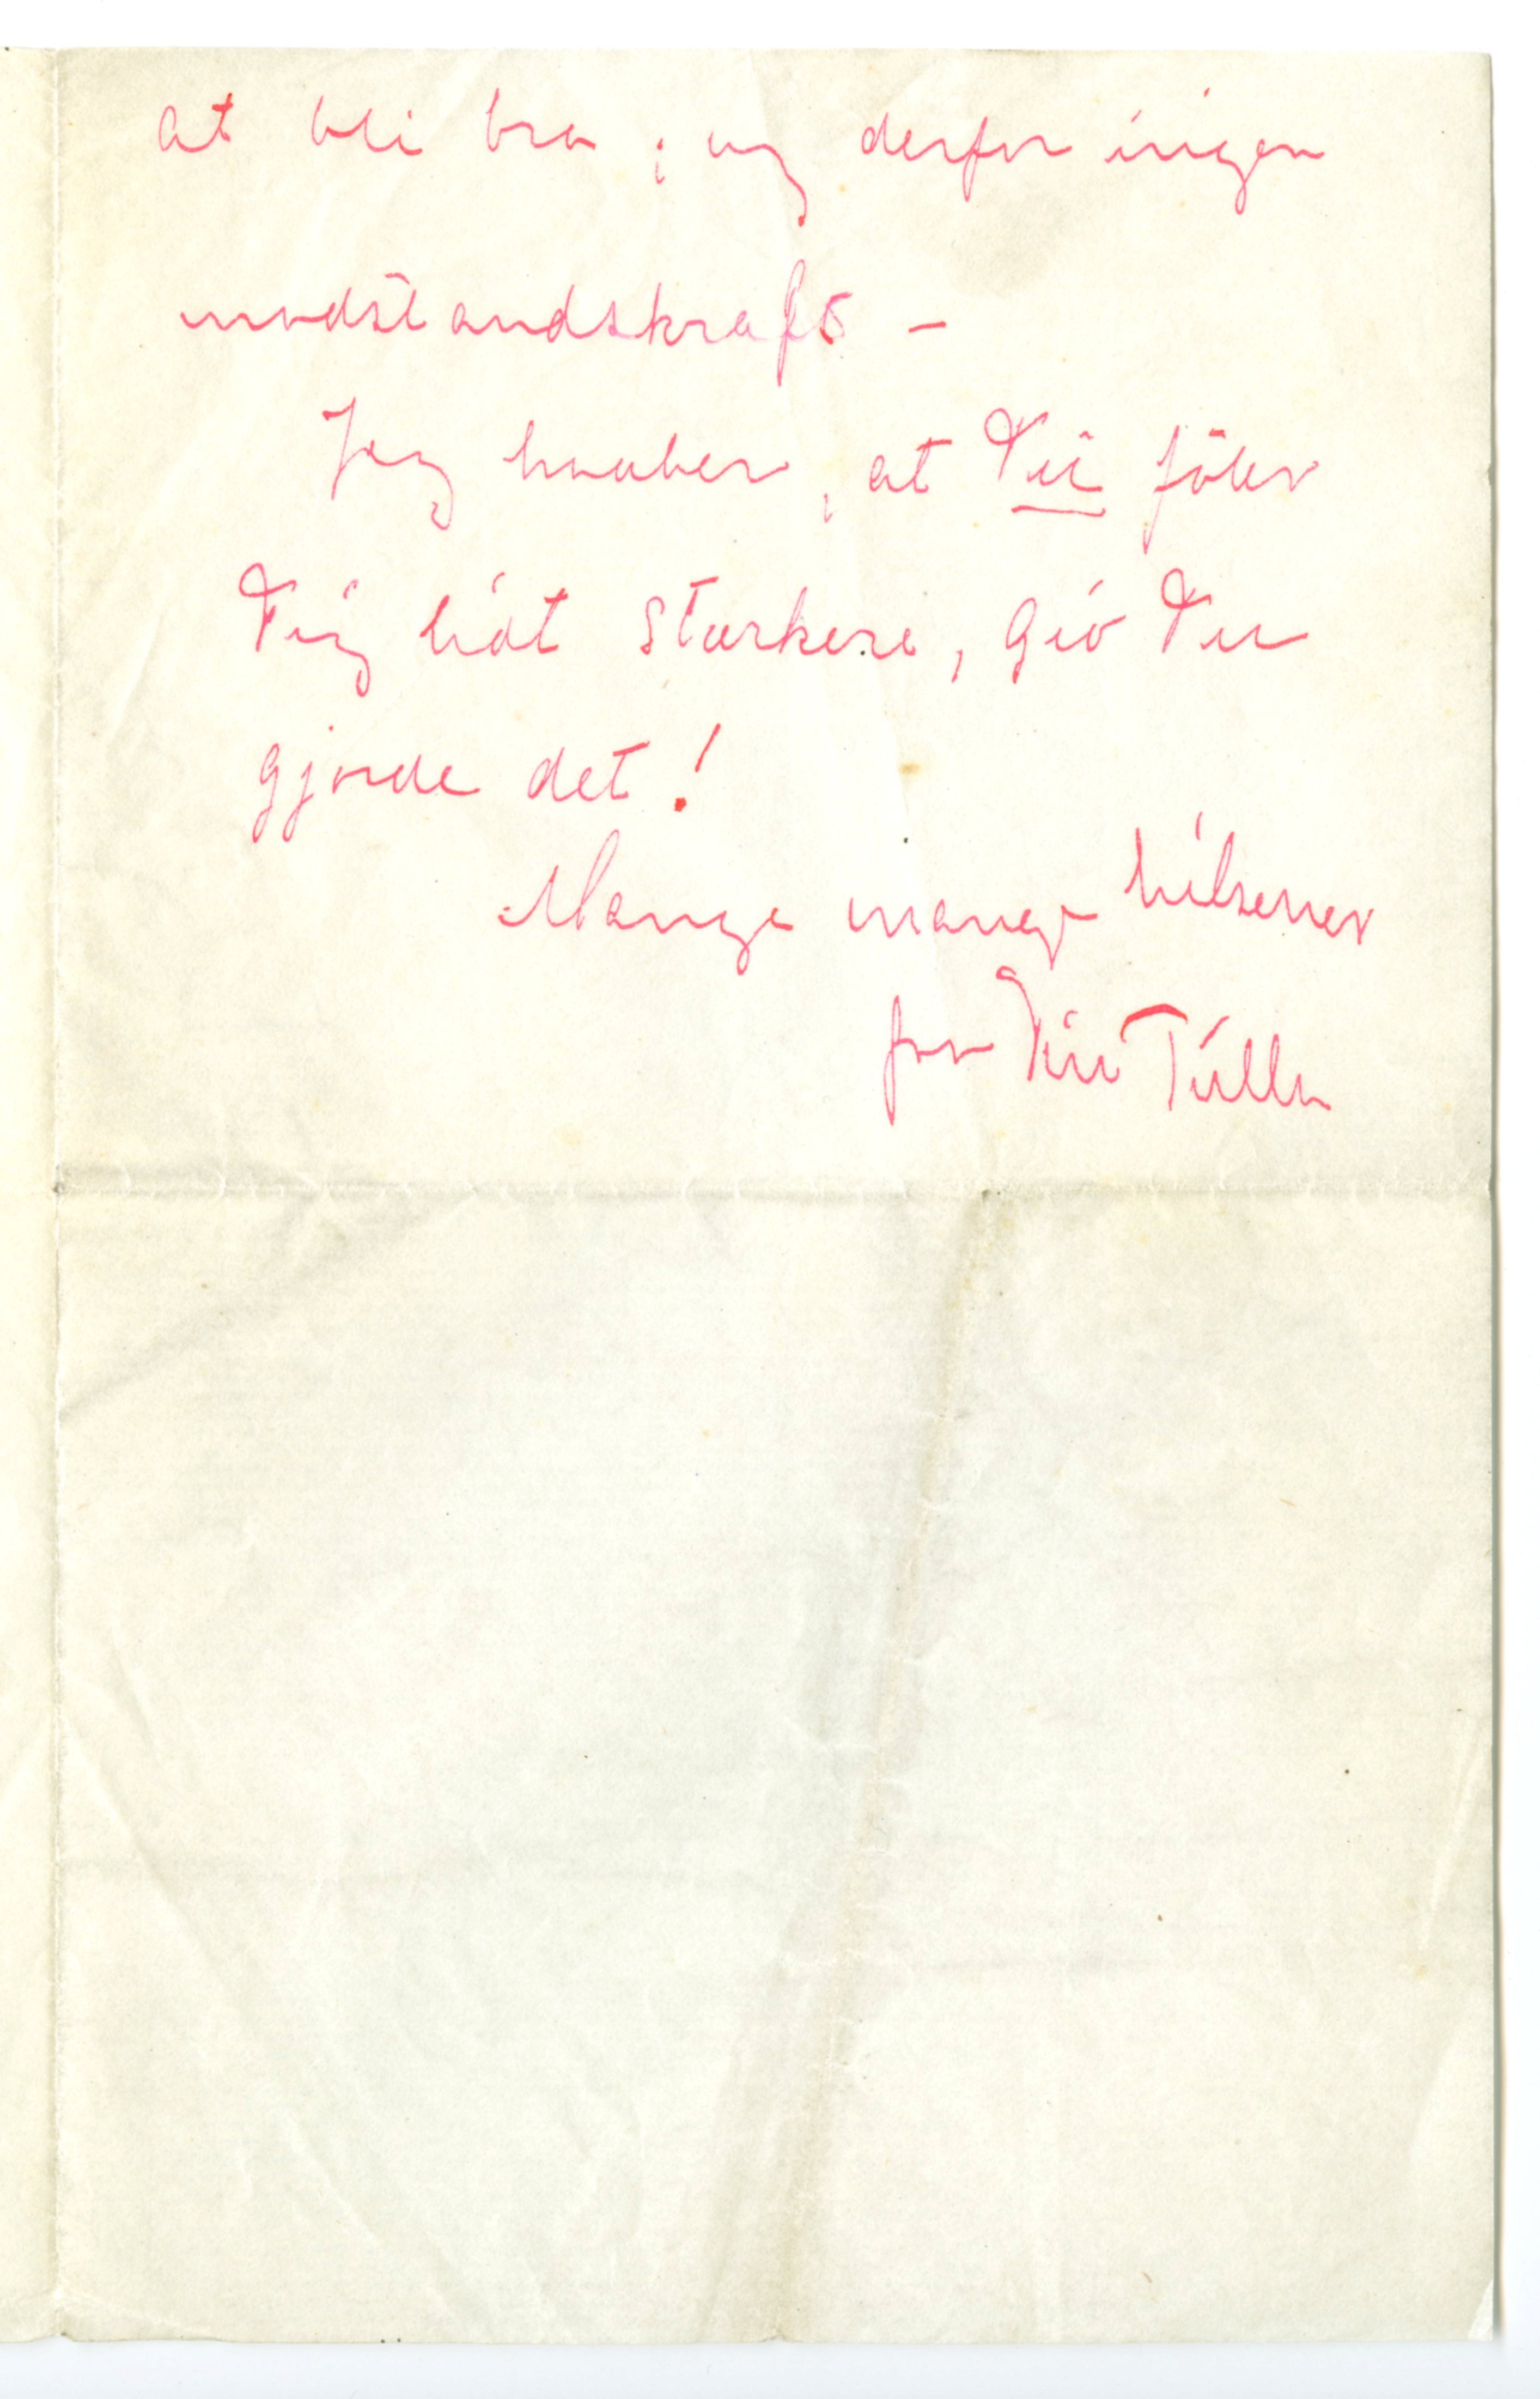 at bli bra; og derfor ingen
modstandskraft –
Jeg haaber, at Du föler
Dig lidt stærkere, gid Du
gjorde det!
Mange mange hilsener
fra Din Tulla